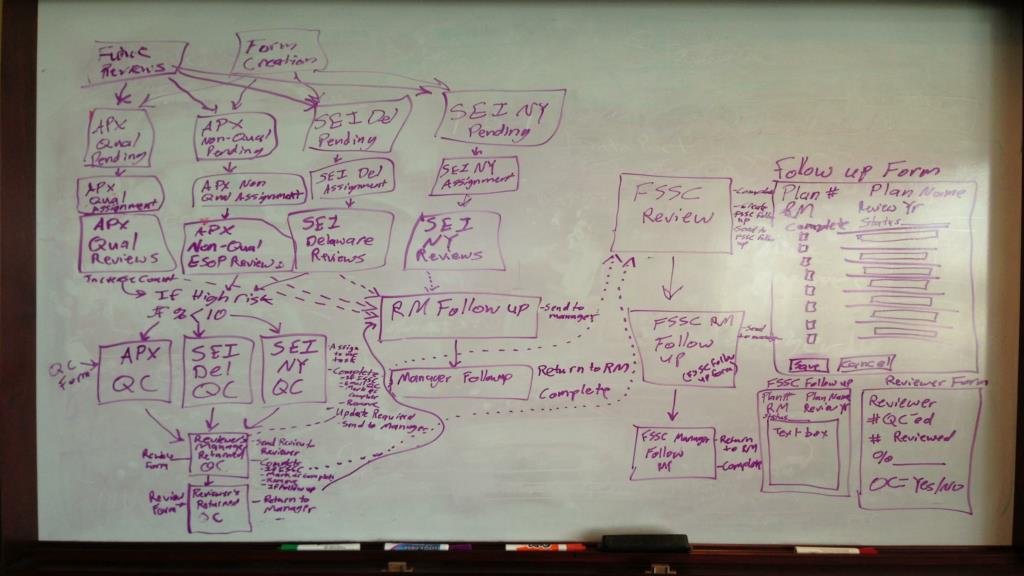 Reviews
Form
Creation
APX
Qual
Pending
APX
Non-Qual
Pending
SEI Del
Pending
SEI NY
Pending
APX
Qual
Assignment
APX Non
Qual Assignment
SEI Del
Assignment
SEI NY
Assignment
APX
Qual
Reviews
APX
Non-Qual
ESOP Reviews
SEI
Delaware
Reviews
SEI
NY
Reviews
Increase Count
If High risk
If % < 10
QC
Form
APX
QC
SEI
Del
QC
SEI
NY
QC
Assign
- Complete
- Remove
Update Required
- Send to Manager
RM Follow up
- Send to
manager
Manager Followup
Return to RM
Complete
Review
Form
Reviewers
Manager
Returned
QC
- Send Review to
Reviewer
- Complete
Mark as complete
- Remove
- If Follow up
Review
Form
Reviewer's
Returned
QC
- Return to
Manager
FSSC
Review
- Complete
- Create
FSSC Follow
up
- Send to
FSSC Follow
up
FSSC RM
Follow
up
(FSSC Follow
up Form)
- Send
FSSC Manager
Follow
up
- Return
to RM
- Complete
Follow up Form
Plan # Plan Name
RM Review Yr
Complete Status
Save Kancel
FSSC Followup
Plan # Plan Name
RM Review Yr
Status
Text box
Reviewer Form
Reviewer
# QC'ed
# Reviewed
% ______
QC = Yes/No